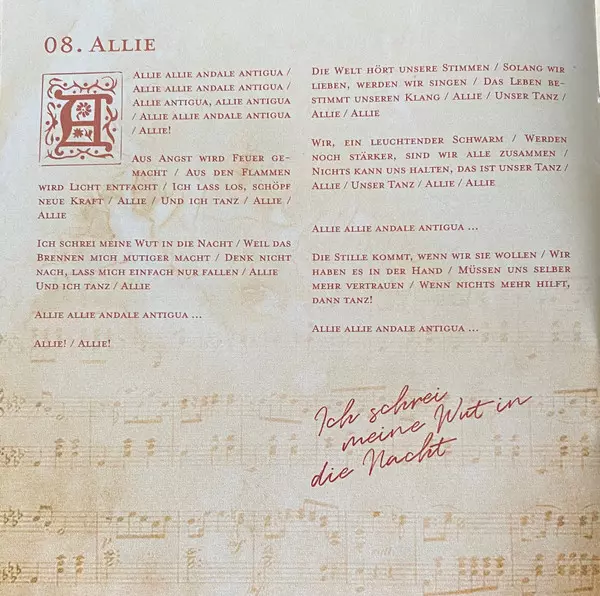 08. Allie
Allie allie andale antigua /
Allie allie andale antigua /
Allie antigua, allie antigua
/ Allie allie andale antigua
/ Allie!
Aus Angst wird Feuer ge-
macht / Aus den Flammen
wird Licht entfacht / Ich lass los, schöpf
neue Kraft / Allie / Und ich tanz / Allie /
Allie
Ich schrei meine Wut in die Nacht / Weil das
Brennen mich mutiger macht / Denk nicht
nach, lass mich einfach nur fallen / Allie
Und ich tanz / Allie
Allie allie andale antigua ...
Allie! / Allie!
Die Welt hört unsere Stimmen / Solang wir
lieben, werden wir singen / Das Leben be-
stimmt unseren Klang / Allie / Unser Tanz /
Allie / Allie
Wir, ein leuchtender Schwarm / Werden
noch stärker, sind wir alle zusammen /
Nichts kann uns halten, das ist unser Tanz /
Allie / Unser Tanz / Allie / Allie
Allie allie andale antigua ...
Die Stille kommt, wenn wir sie wollen / Wir
haben es in der Hand / Müssen uns selber
mehr vertrauen / Wenn nichts mehr hilft,
dann tanz!
Allie allie andale antigua ...
Ich schrei
meine Wut in
die Nacht